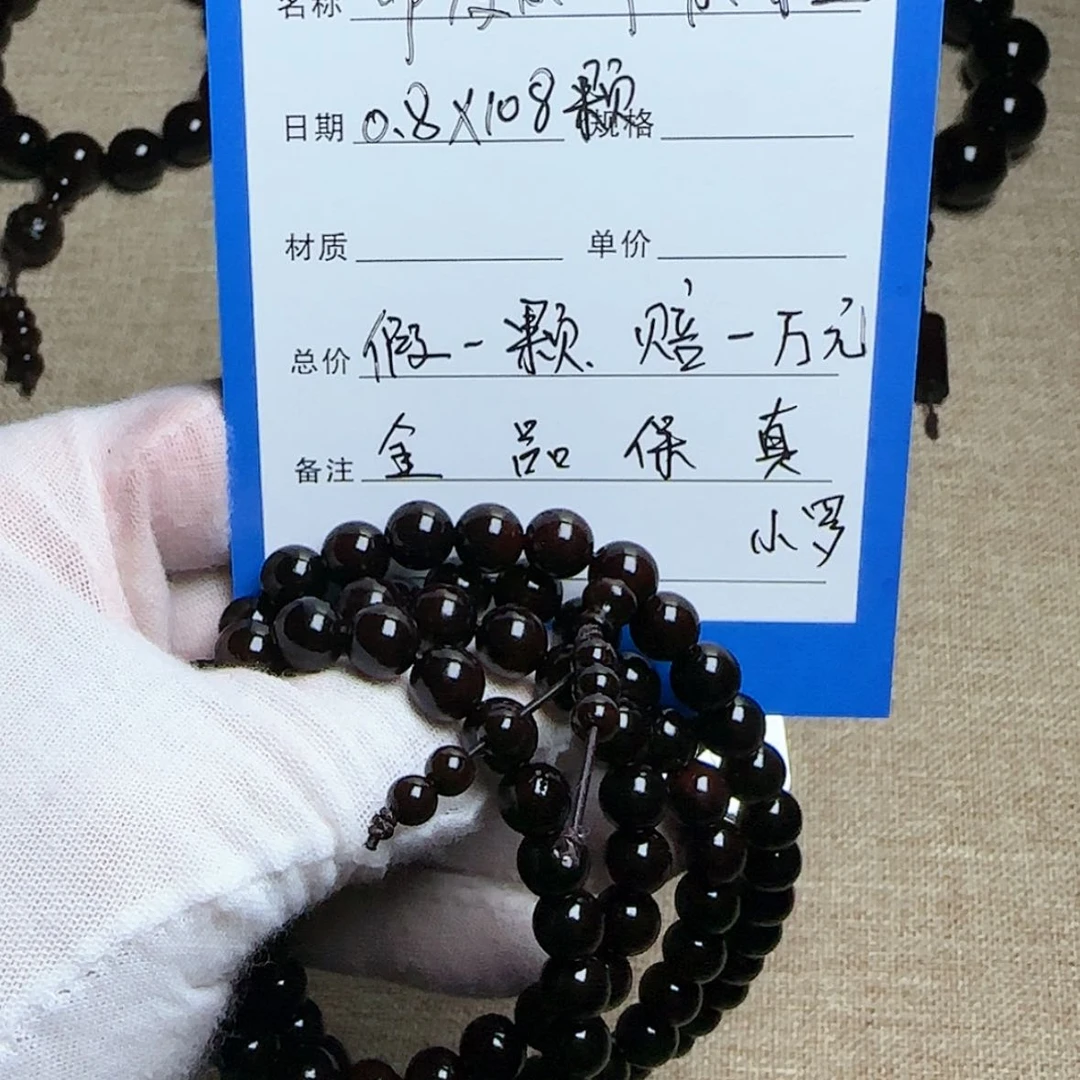 名称
日期 0.8X108颗 规格
材质 单价
总价 假一颗、赔一万元
备注 全品保真
小罗